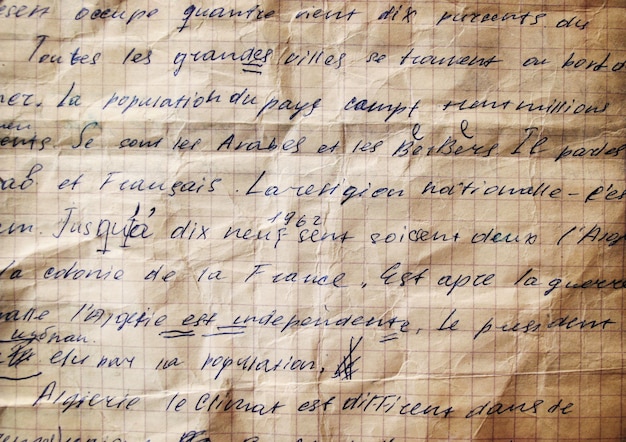 desert occupe quantre vent dix purcents du
Toutes les grandes villes se trouvent au bord d
mer. La population du pays compt trent millions
Se sont les Arabes et les BerBers Il parles
et Français. La religion nationalle - c'es
Jusqu'à dix neuf sent soicent deux l'Alge
1962
la colonie de la France. Est apre la guerre
l'Algerie est independente. Le president
elu par la population.
Algierie le climat est different dans de